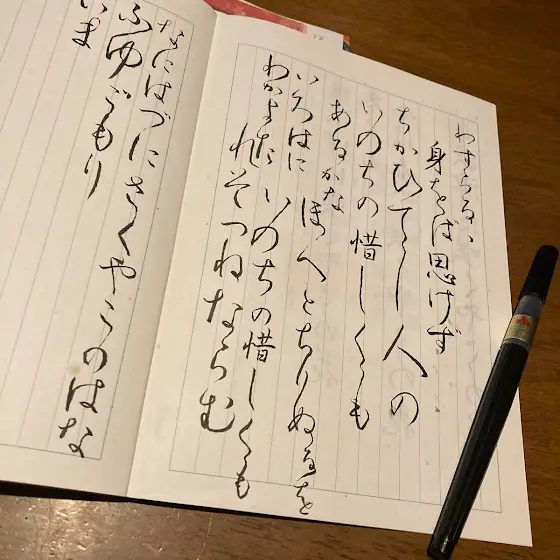 わすらるゝ
身をば思はず
ちかひてし人の
いのちの惜しくも
あるかな
いろはに ほへとちりぬるを
わかよた いのちの惜しくも
れそつねならむ
なにはづにさくやこのはな
ふゆごもり
いま